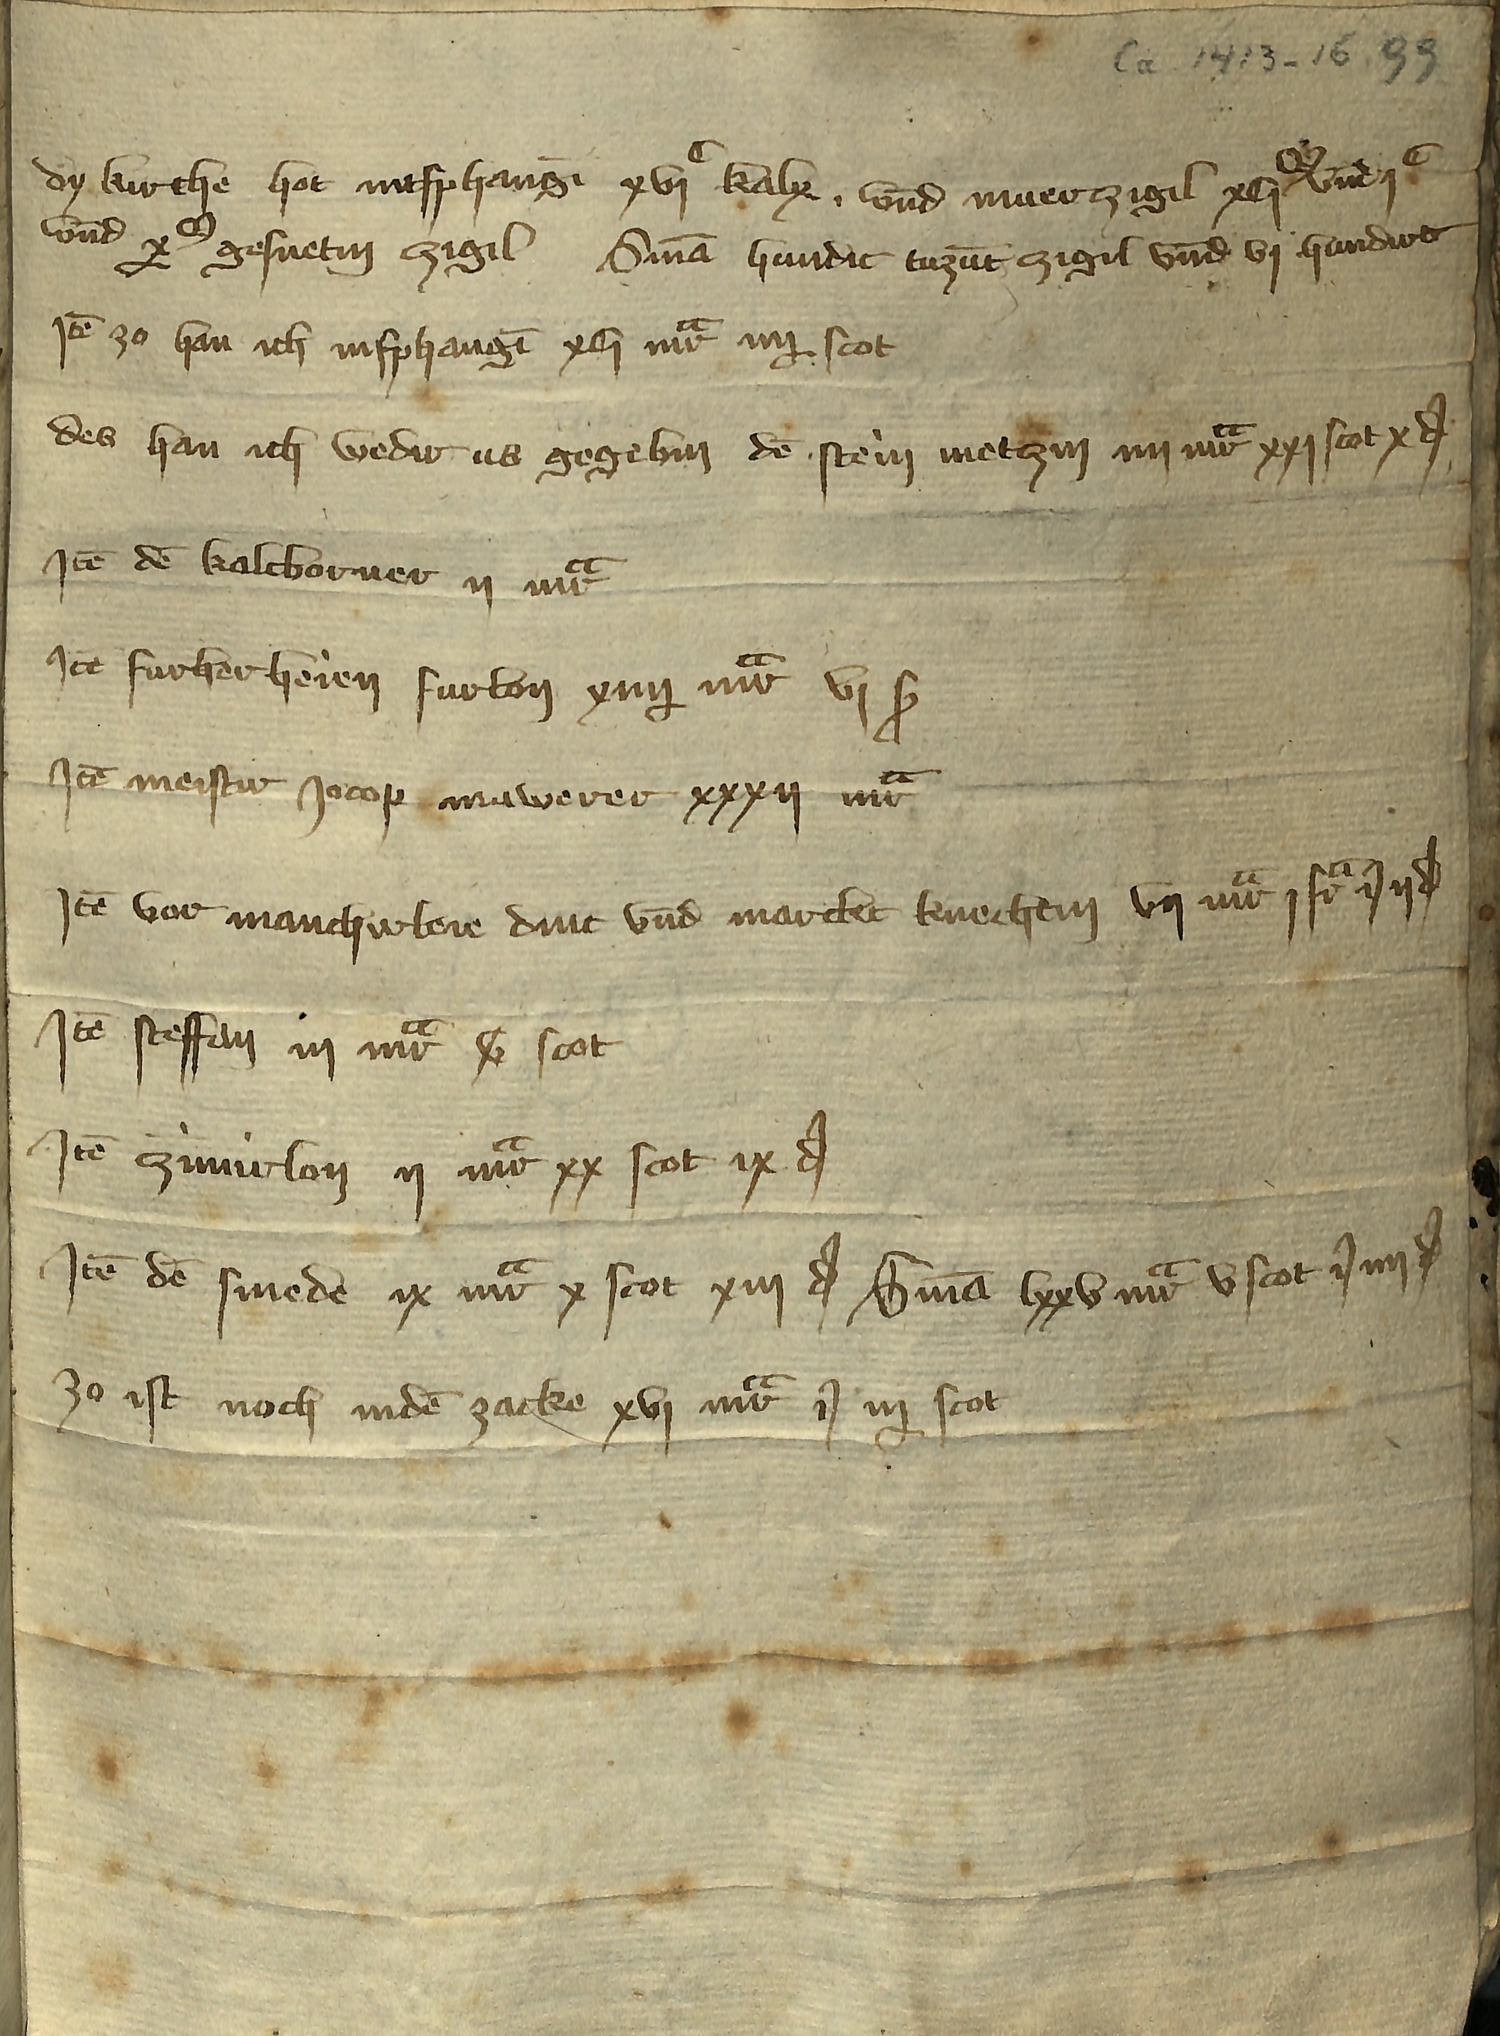 Ca. 1413-16. 99
dy kirche hot intfphangē xvi^C kalx. vnd muerzigil xci^M vnd i^C
vnd x^M gesnetin zigil Sum̄a hundirt tuzūt zigil vnd vi hundirt
Itē zo han ich infphangē xci mr̄ iiij scot
des han ich wedir us gegebin dē stein metzin iiii mr̄ xxi scot x d
Itē dē kalcborner ii mr̄
Itē furherheien furlon xiiij mr̄ vi
Itē meistir Jocop mawerer xxxii mr̄
Itē vor manchirleie dinc vnd marckt knechtin vii mr̄ i fr̄ ii d
Itē steffan iii mr̄ scot
Itē zimirlon ii mr̄ xx scot ix d
Itē dē smede ix mr̄ x scot xiii d Sum̄a lxxv mr̄ v scot iiii d
zo ist noch indē zacke xvi mr̄ iij scot